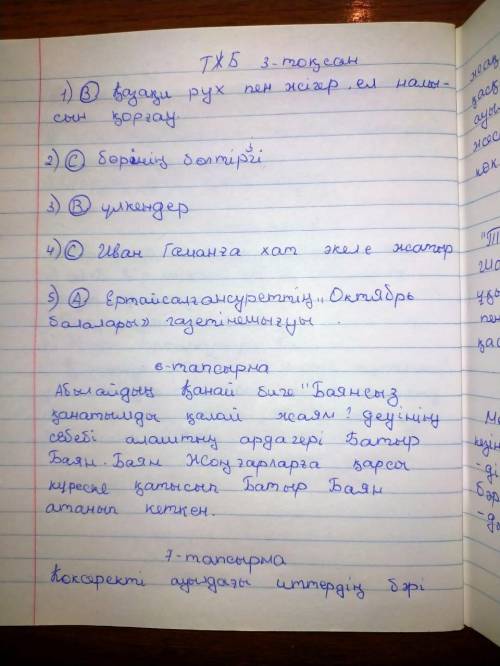 ТЖБ 3-тоқсан
1) B қазақи рух пен жігер, ел намы-
сын қорғау.
2) C бөрінің бөлтірігі
3) B үлкендер
4) C Иван Гаманға хат әкеле жатыр
5) A Ертайсалғансуреттің „Октябрь
балалары» газетінешығуы .
6-тапсырма
Абылайдың Қанай биге "Баянсыз
қанатымды қалай жаям? деуінің
себебі алаштың ардагері Батыр
Баян. Баян Жоңғарларға қарсы
күреске қатысып Батыр Баян
атанып кеткен.
7-тапсырма
Көксеректі ауылдағы иттердің бәрі
жаң
қасқ
ауы
жас
көк
"Т
ша
ұзы
пен
қас
Ма
кейін
-ді
бәр
-ды